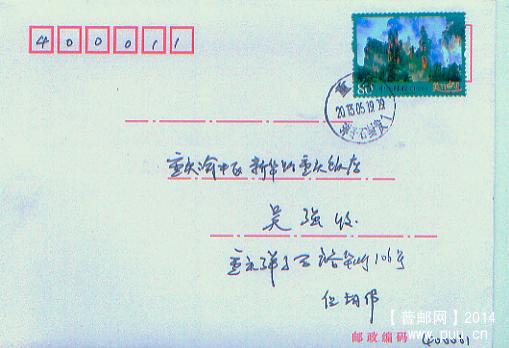 400011
80
2013.05.19.19
重庆渝中区新华路重庆饭店
吴强收
重庆弹子石裕华街106号
邮政编码 400061
【普邮网】2014
www.puu.cn